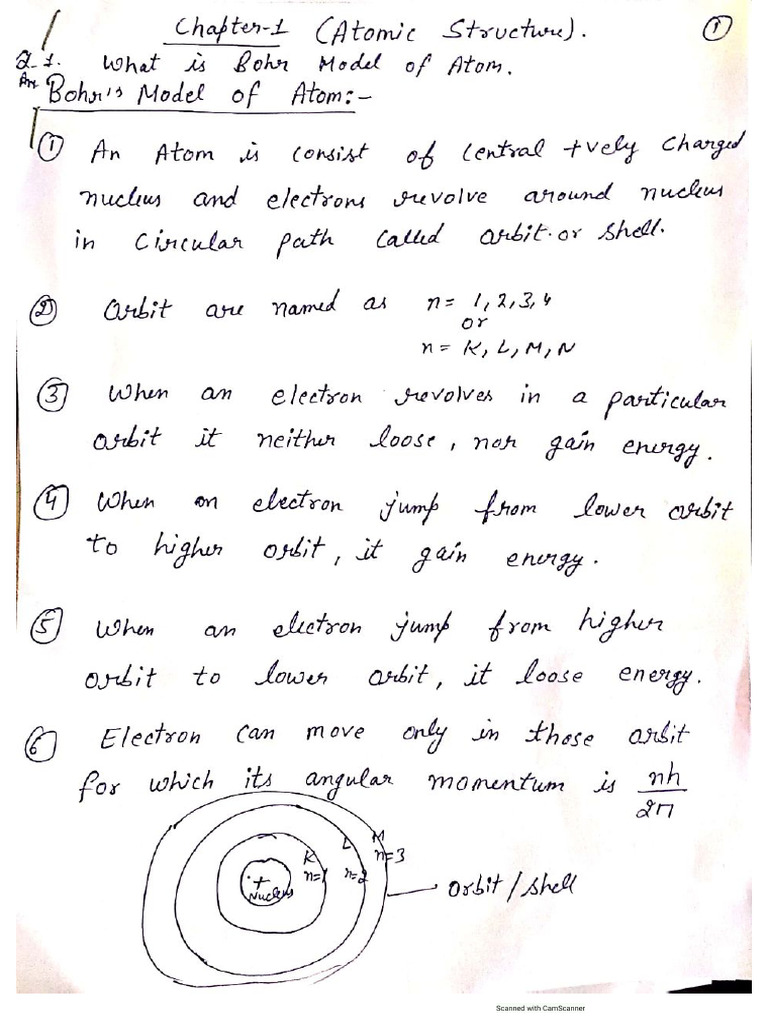 Chapter-1 (Atomic Structure). 1
Q.1. What is Bohr Model of Atom.
Ans Bohr's Model of Atom:-
1 An Atom is consist of central +vely charged
nucleus and electrons revolve around nucleus
in circular path called orbit or shell.
2 Orbit are named as n= 1,2,3,4
or
n= K, L, M, N
3 When an electron revolves in a particular
orbit it neither loose, nor gain energy.
4 When an electron jump from lower orbit
to higher orbit, it gain energy.
5 When an electron jump from higher
orbit to lower orbit, it loose energy.
6 Electron can move only in those orbit
for which its angular momentum is nh/2π
K L M
n=1 n=2 n=3
+
Nucleus
Orbit / Shell
Scanned with CamScanner